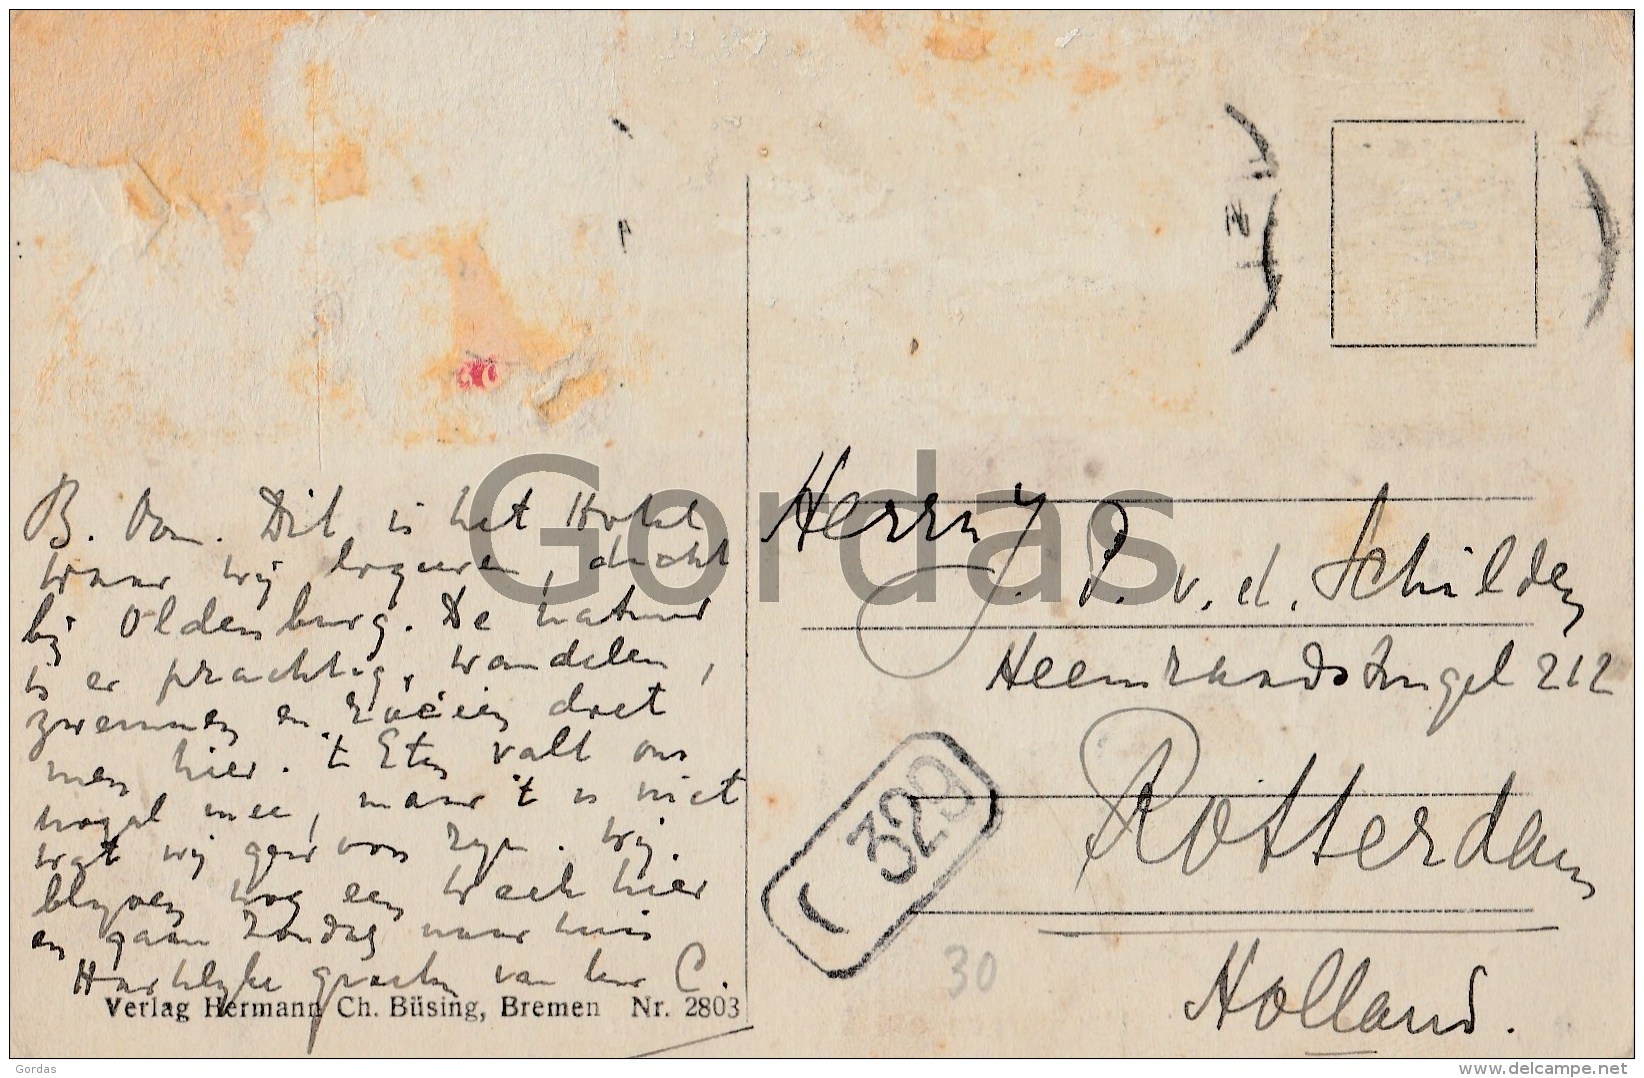 B. Oom. Dit is het Hotel
waar wij logeeren, dicht
bij Oldenburg. De natuur
is er prachtig, wandelen,
zwemmen en roeien doet
men hier. 't Eten valt ons
nogal mee, maar 't is niet
wat wij gewoon zijn. Wij
blijven nog een week hier
en gaan Zondag naar huis
Hartelijke groeten van C.
Verlag Hermann Ch. Büsing, Bremen Nr. 2803
Herrn J. P. v. d. Schilden
Heemraadsingel 212
Rotterdam
Holland.
329
30
Gordas
Gordas
www.delcampe.net